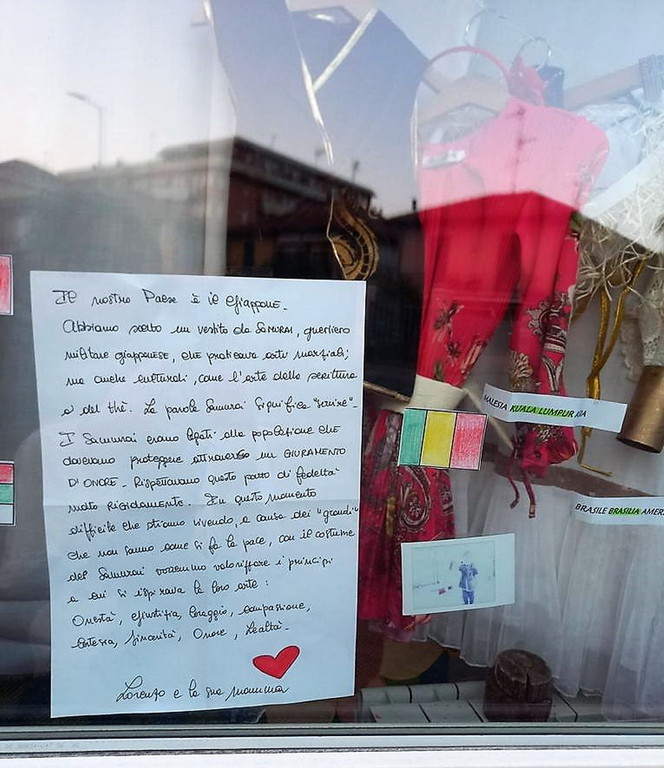 Il nostro Paese è il Giappone.
Abbiamo scelto un vestito da SAMURAI, guerriero
militare giapponese, che praticava arti marziali;
ma anche culturali, come l'arte della scrittura
e del thè. La parola Samurai significa "servire".
I Samurai erano legati alla popolazione che
dovevano proteggere attraverso un GIURAMENTO
DI ONORE. Rispettavano questo patto di fedeltà
molto rigidamente. In questo momento
difficile che stiamo vivendo, a causa dei "grandi"
che non sanno come si fa la pace, con il costume
del Samurai vorremmo valorizzare i principi
a cui si ispirava la loro arte:
Onestà, Giustizia, Coraggio, Compassione,
Cortesia, Sincerità, Onore, Lealtà.
Lorenzo e la sua mamma
MALESIA KUALA LUMPUR
BRASILE BRASILIA AMER